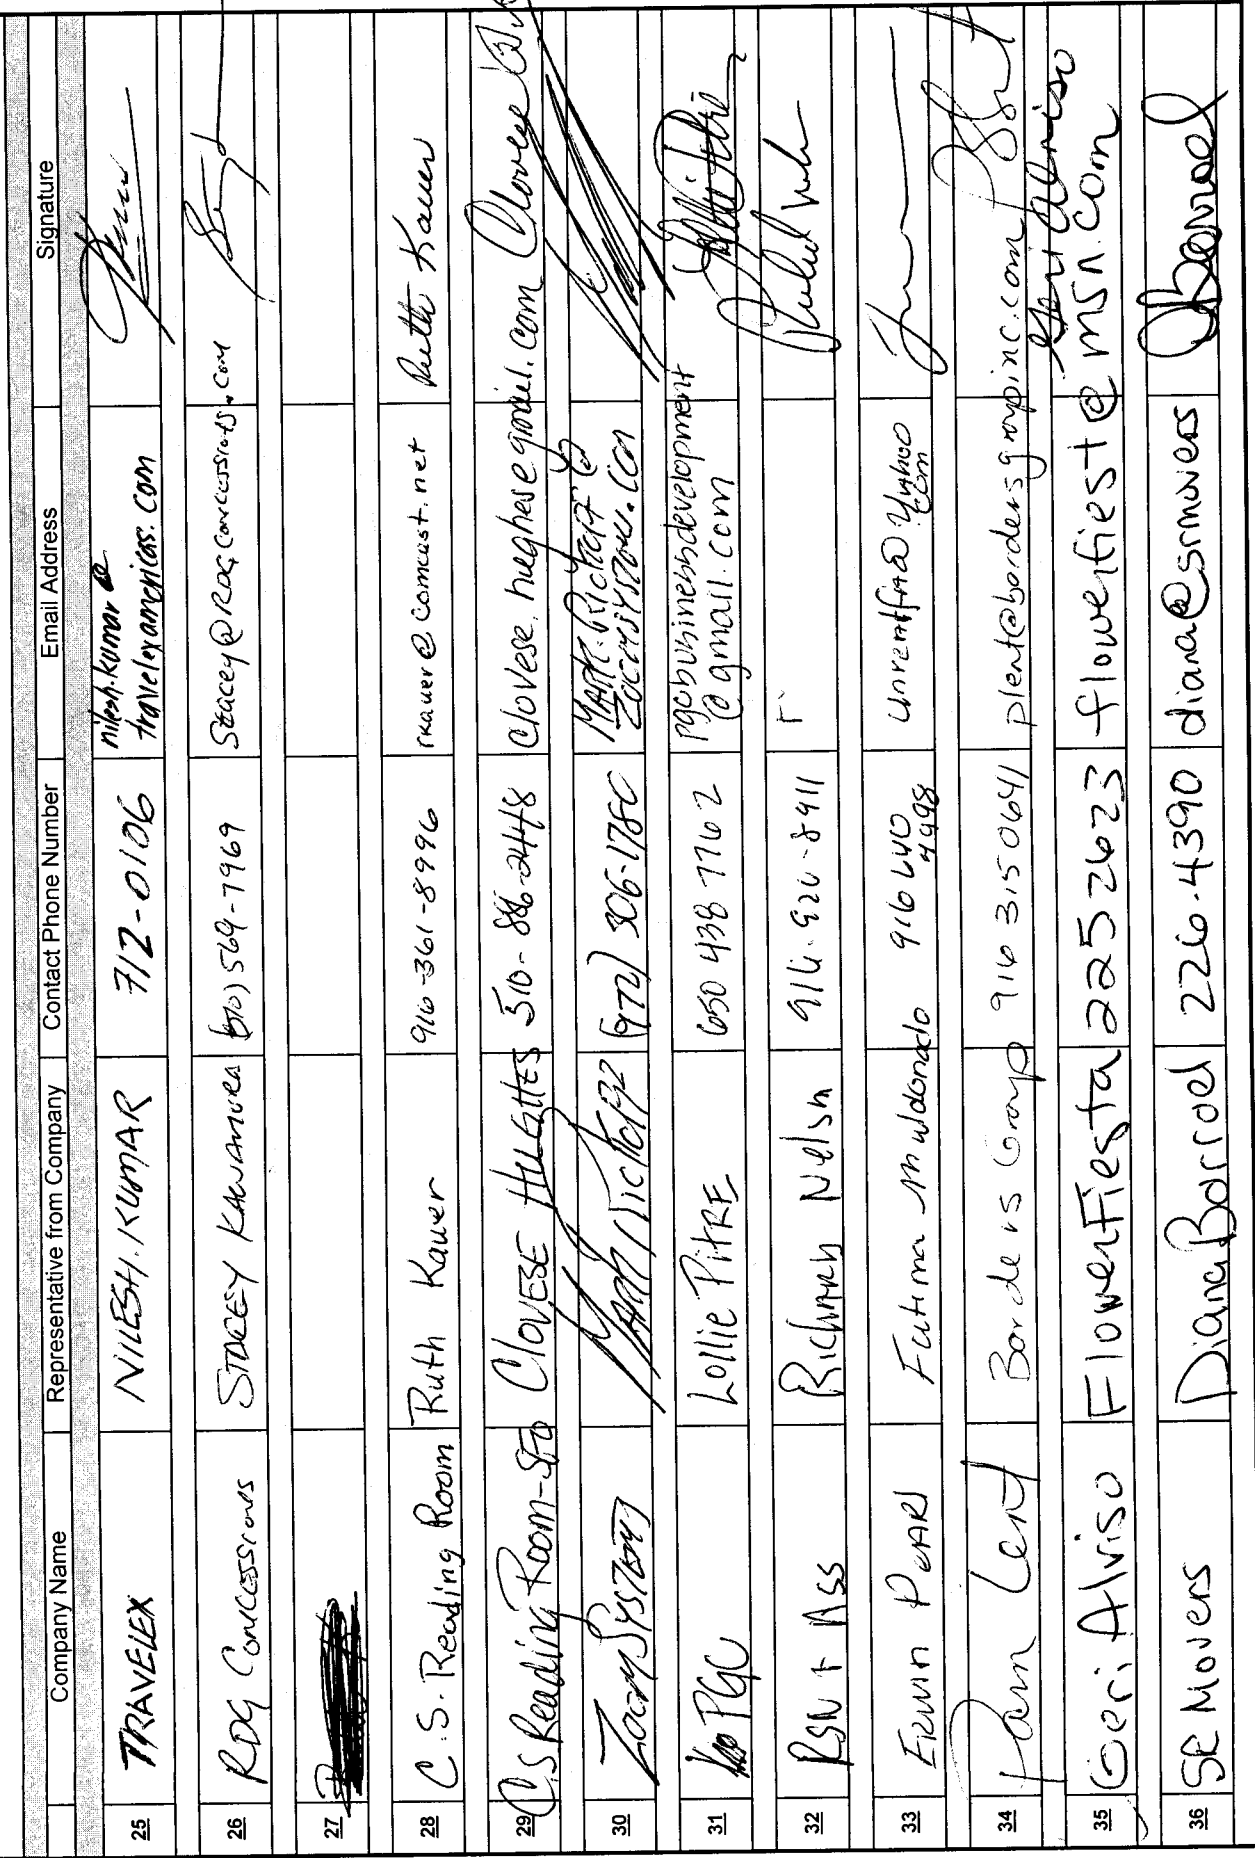 Company Name Representative from Company Contact Phone Number Email Address Signature
25 TRAVELEX NILESH. KUMAR 712-0106 nilesh.kumar@
travelexamericas.com
26 RDG Concessions STACEY KAWAMURA (510) 569-7969 Stacey@RDGConcessions.com
27
28 C.S. Reading Room Ruth Kauer 916-361-8996 rkauer@comcast.net Ruth Kauer
29 C.S Reading Room-SFO CLOVESE HUGHES 510-886-2448 clovese.hughes@gmail.com Clovese
30 ZoomSystems (972) 306-1780 Mark.
zoomsystems.com
31 PGC Lollie PitRE 650 438 7762 pgcbusinessdevelopment
@gmail.com
32 RSN + Ass RichARD Nelson 916-920-8911
33 ERwin PeARl Fatima Maldonado 916 640
4998 @yahoo
.com
34 Pam Lent Borders Group 916 315 0641 plent@bordersgroupinc.com
35 Geri Alviso FlowerFiesta 225 2623 flowerfiest@msn.com Geri Alviso
36 SR Movers Diana Borrod 226-4390 diana@srmovers